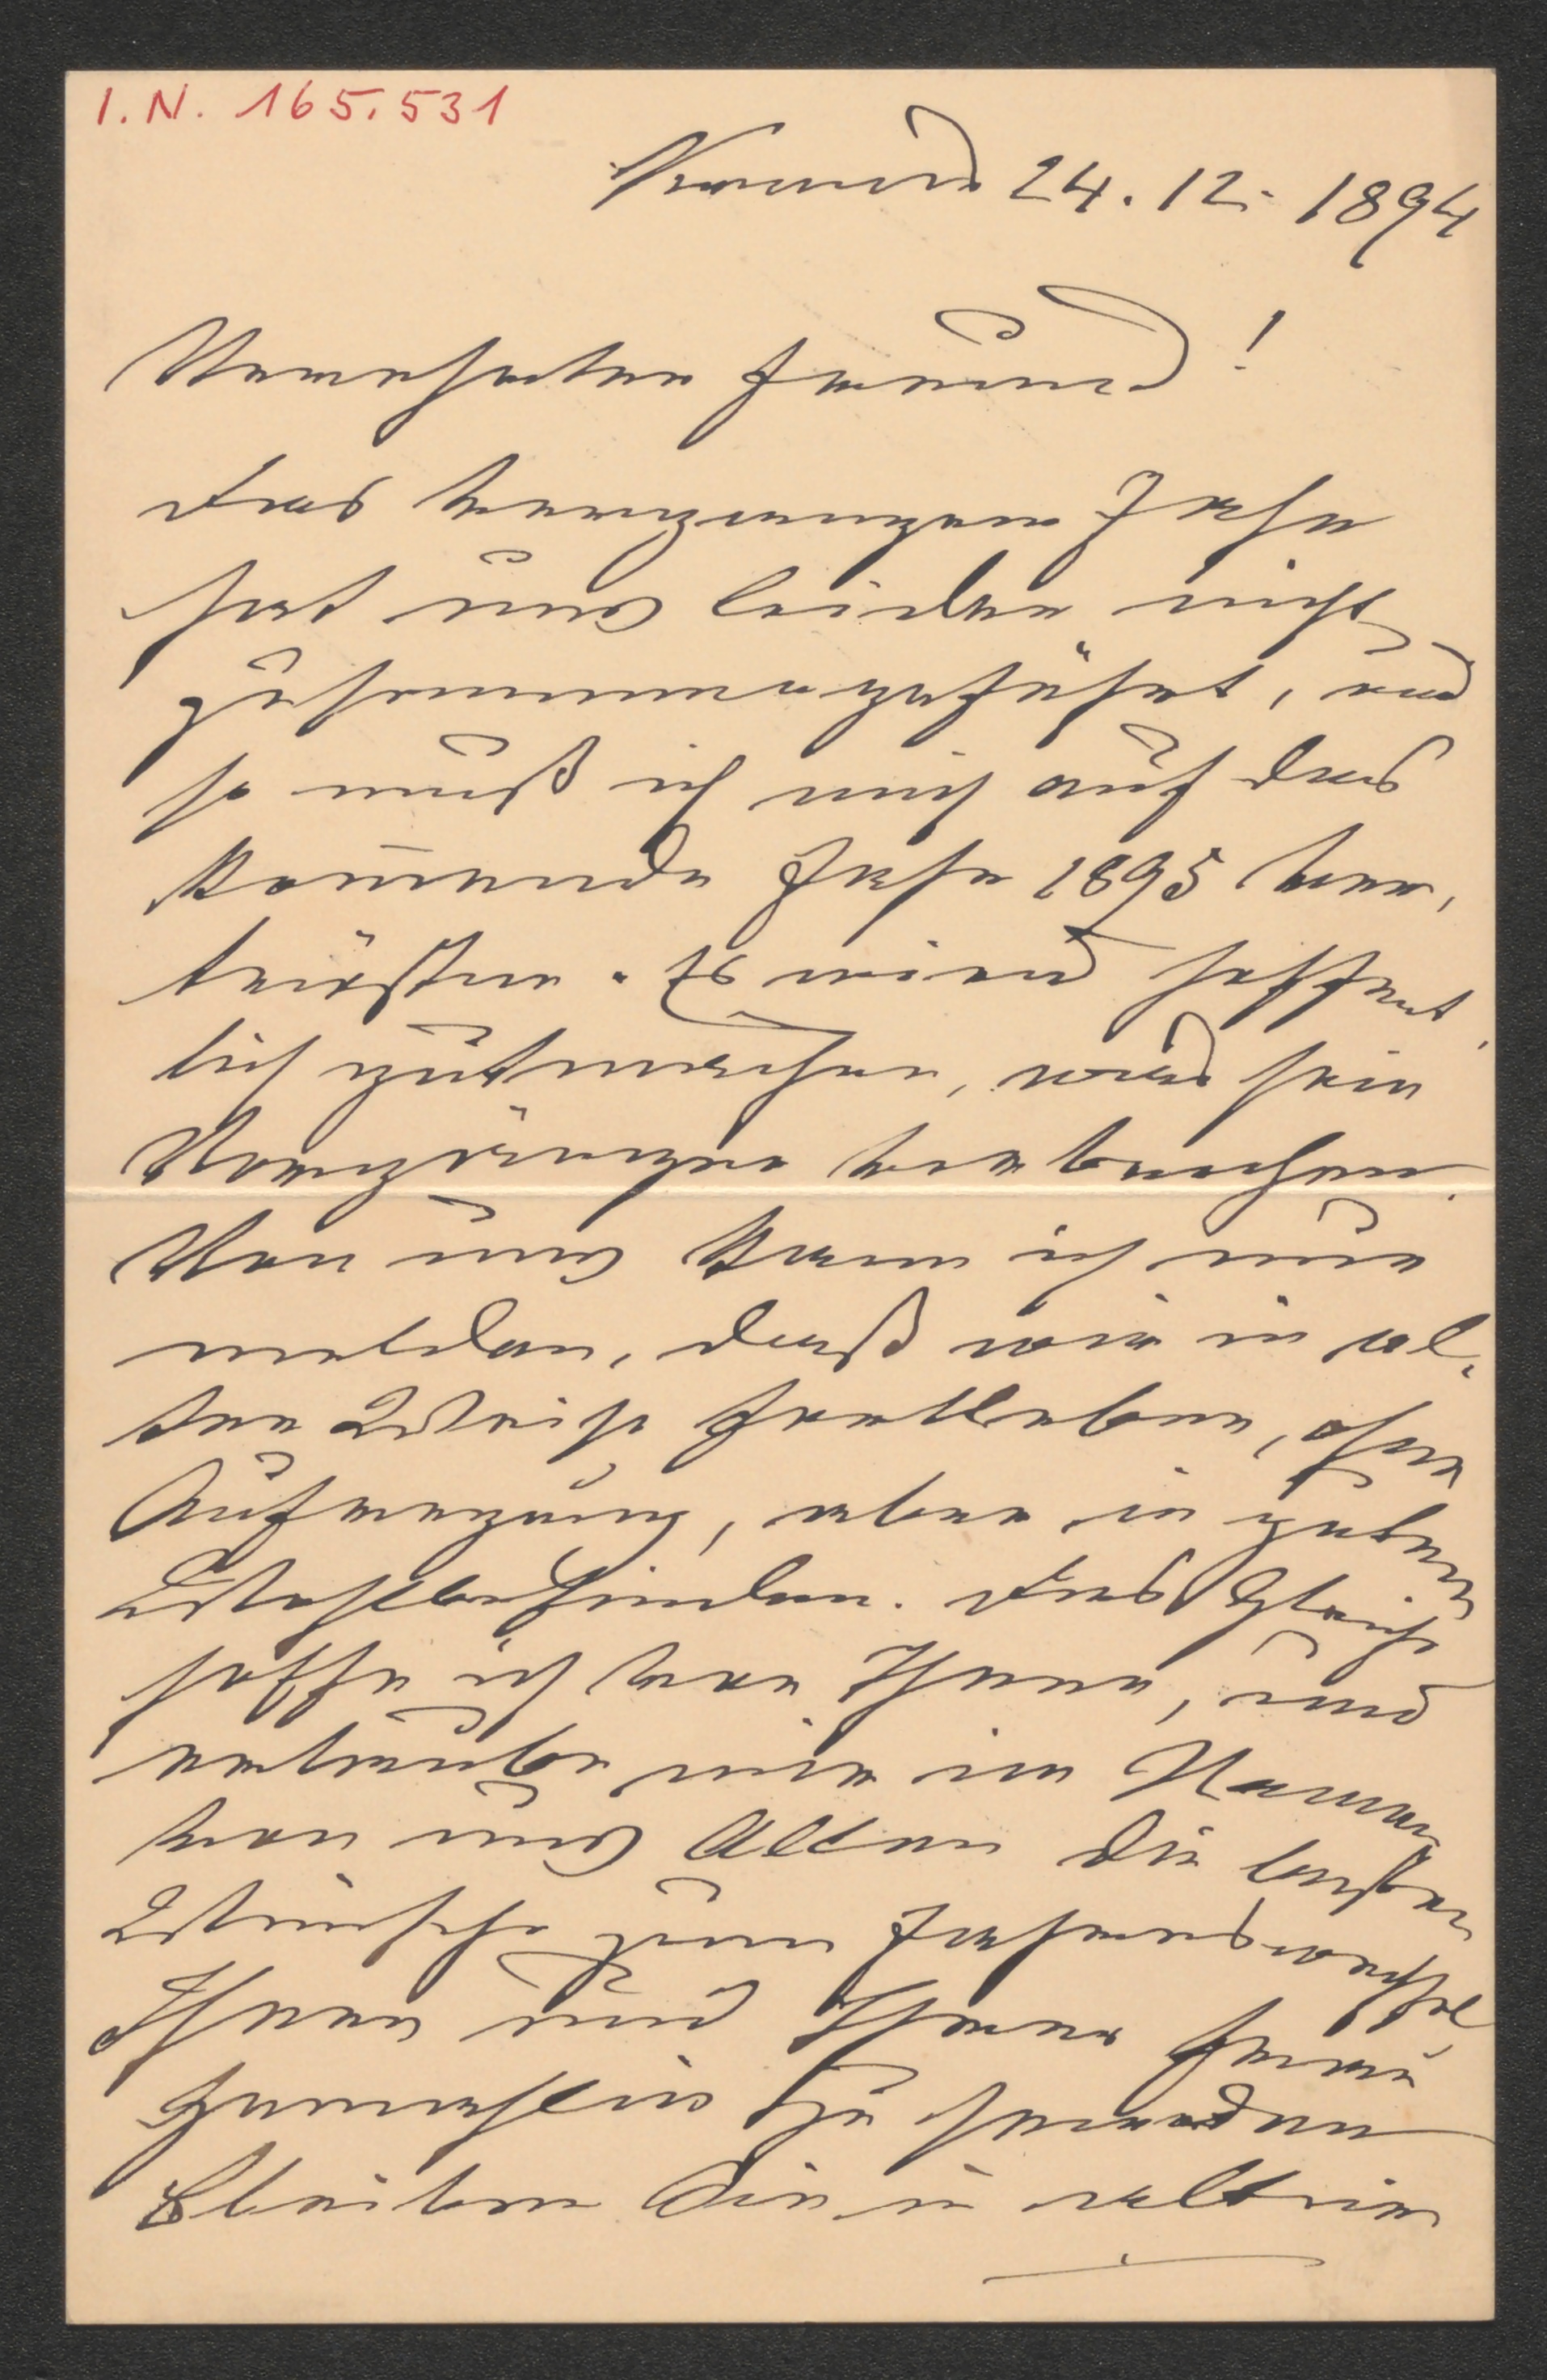 I. N. 165.531
24. 12. 1894
Verehrter Freund!
Das vergangene Jahr
hat uns leider nicht
zusammengeführt, und
so muß ich mich auf das
kom̄ende Jahr 1895 ver,
trösten. Es wird hoffent,
lich gutmachen, was sein
Vorgänger verbrochen.
Von uns kann ich nur
melden, daß wir in al,
ter Weise fortleben, ohne
Aufregung, aber in gutem
Wohlbefinden. Das Gleiche
hoffe ich von Ihnen, und
erlaube mir im Namen
von uns Allen die besten
Wünsche zum Jahreswechsel
Ihnen und Ihrer Frau
Gemahlin zu senden
Bleiben Sie in alter